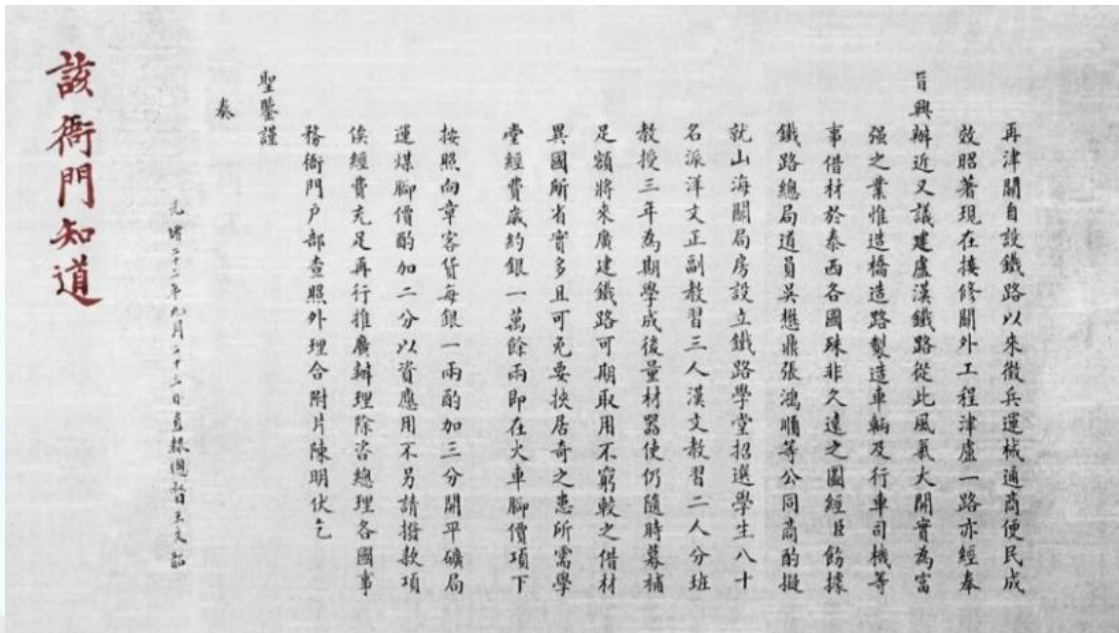 再津關自設鐵路以來徵兵運械通商便民成
效昭著現在接修關外工程津盧一路亦經奉
旨興辦近又議建盧漢鐵路從此風氣大開實為富
强之業惟造橋造路製造車輛及行車司機等
事借材於泰西各國殊非久遠之圖經臣飭據
鐵路總局道員吳懋鼎張鴻順等公同商酌擬
就山海關局房設立鐵路學堂招選學生八十
名派洋文正副教習三人漢文教習二人分班
教授三年為期學成後量材器使仍隨時募補
足額將來廣建鐵路可期取用不窮較之借材
異國所省實多且可免要挾居奇之患所需學
堂經費歲約銀一萬餘兩即在火車腳價項下
按照向章客貨每銀一兩酌加三分開平礦局
運煤腳價酌加二分以資應用不另請撥款項
俟經費充足再行推廣辦理除咨總理各國事
務衙門户部查照外理合附片陳明伏乞
聖鑒謹
奏
光緒二十二年九月二十二日直隸總督王文韶
該衙門知道